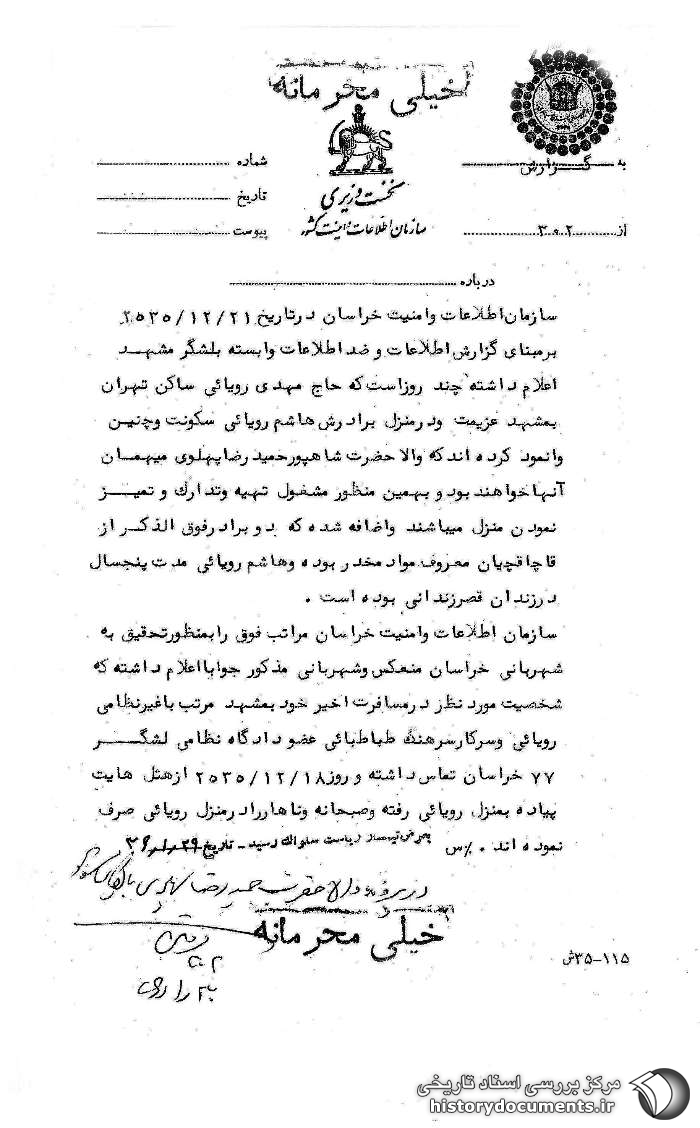 خیلی محرمانه
نخست وزیری
سازمان اطلاعات و امنیت کشور
به گزارش
از ۳۰۲
شماره
تاریخ
پیوست
درباره
سازمان اطلاعات وامنیت خراسان درتاریخ ۲۵۳۵/۱۲/۲۱
برمبنای گزارش اطلاعات و ضد اطلاعات وابسته بلشگر مشهد
اعلام داشته چند روزاست که حاج مهدی رویائی ساکن تهران
بمشهد عزیمت ودر منزل برادرش هاشم رویائی سکونت وچنین
وانمود کرده اند که والا حضرت شاهپور حمید رضا پهلوی میهمان
آنها خواهند بود و بهمین منظور مشغول تهیه وتدارك و تمیز
نمودن منزل میباشند واضافه شده که دو برادر فوق الذکر از
قاچاقچیان معروف مواد مخدر بوده وهاشم رویائی مدت پنجسال
در زندان قصر زندانی بوده است .
سازمان اطلاعات وامنیت خراسان مراتب فوق را بمنظور تحقیق به
شهربانی خراسان منعکس وشهربانی مذکور جوابا اعلام داشته که
شخصیت مورد نظر در مسافرت اخیر خود بمشهد مرتب باغیرنظامی
رویائی وسرکار سرهنگ طباطبائی عضو دادگاه نظامی لشگر
۷۷ خراسان تماس داشته و روز ۲۵۳۵/۱۲/۱۸ از هتل هایت
پیاده بمنزل رویائی رفته وصبحانه وناهار رادر منزل رویائی صرف
نموده اند . %س
بعرض تیمسار ریاست ساواك رسید - تاریخ ۳۶/۱/۲۹
در پرونده والاحضرت حمید رضا پهلوی
خیلی محرمانه
۱۱۵-۳۵ش
مرکز بررسی اسناد تاریخی
historydocuments.ir